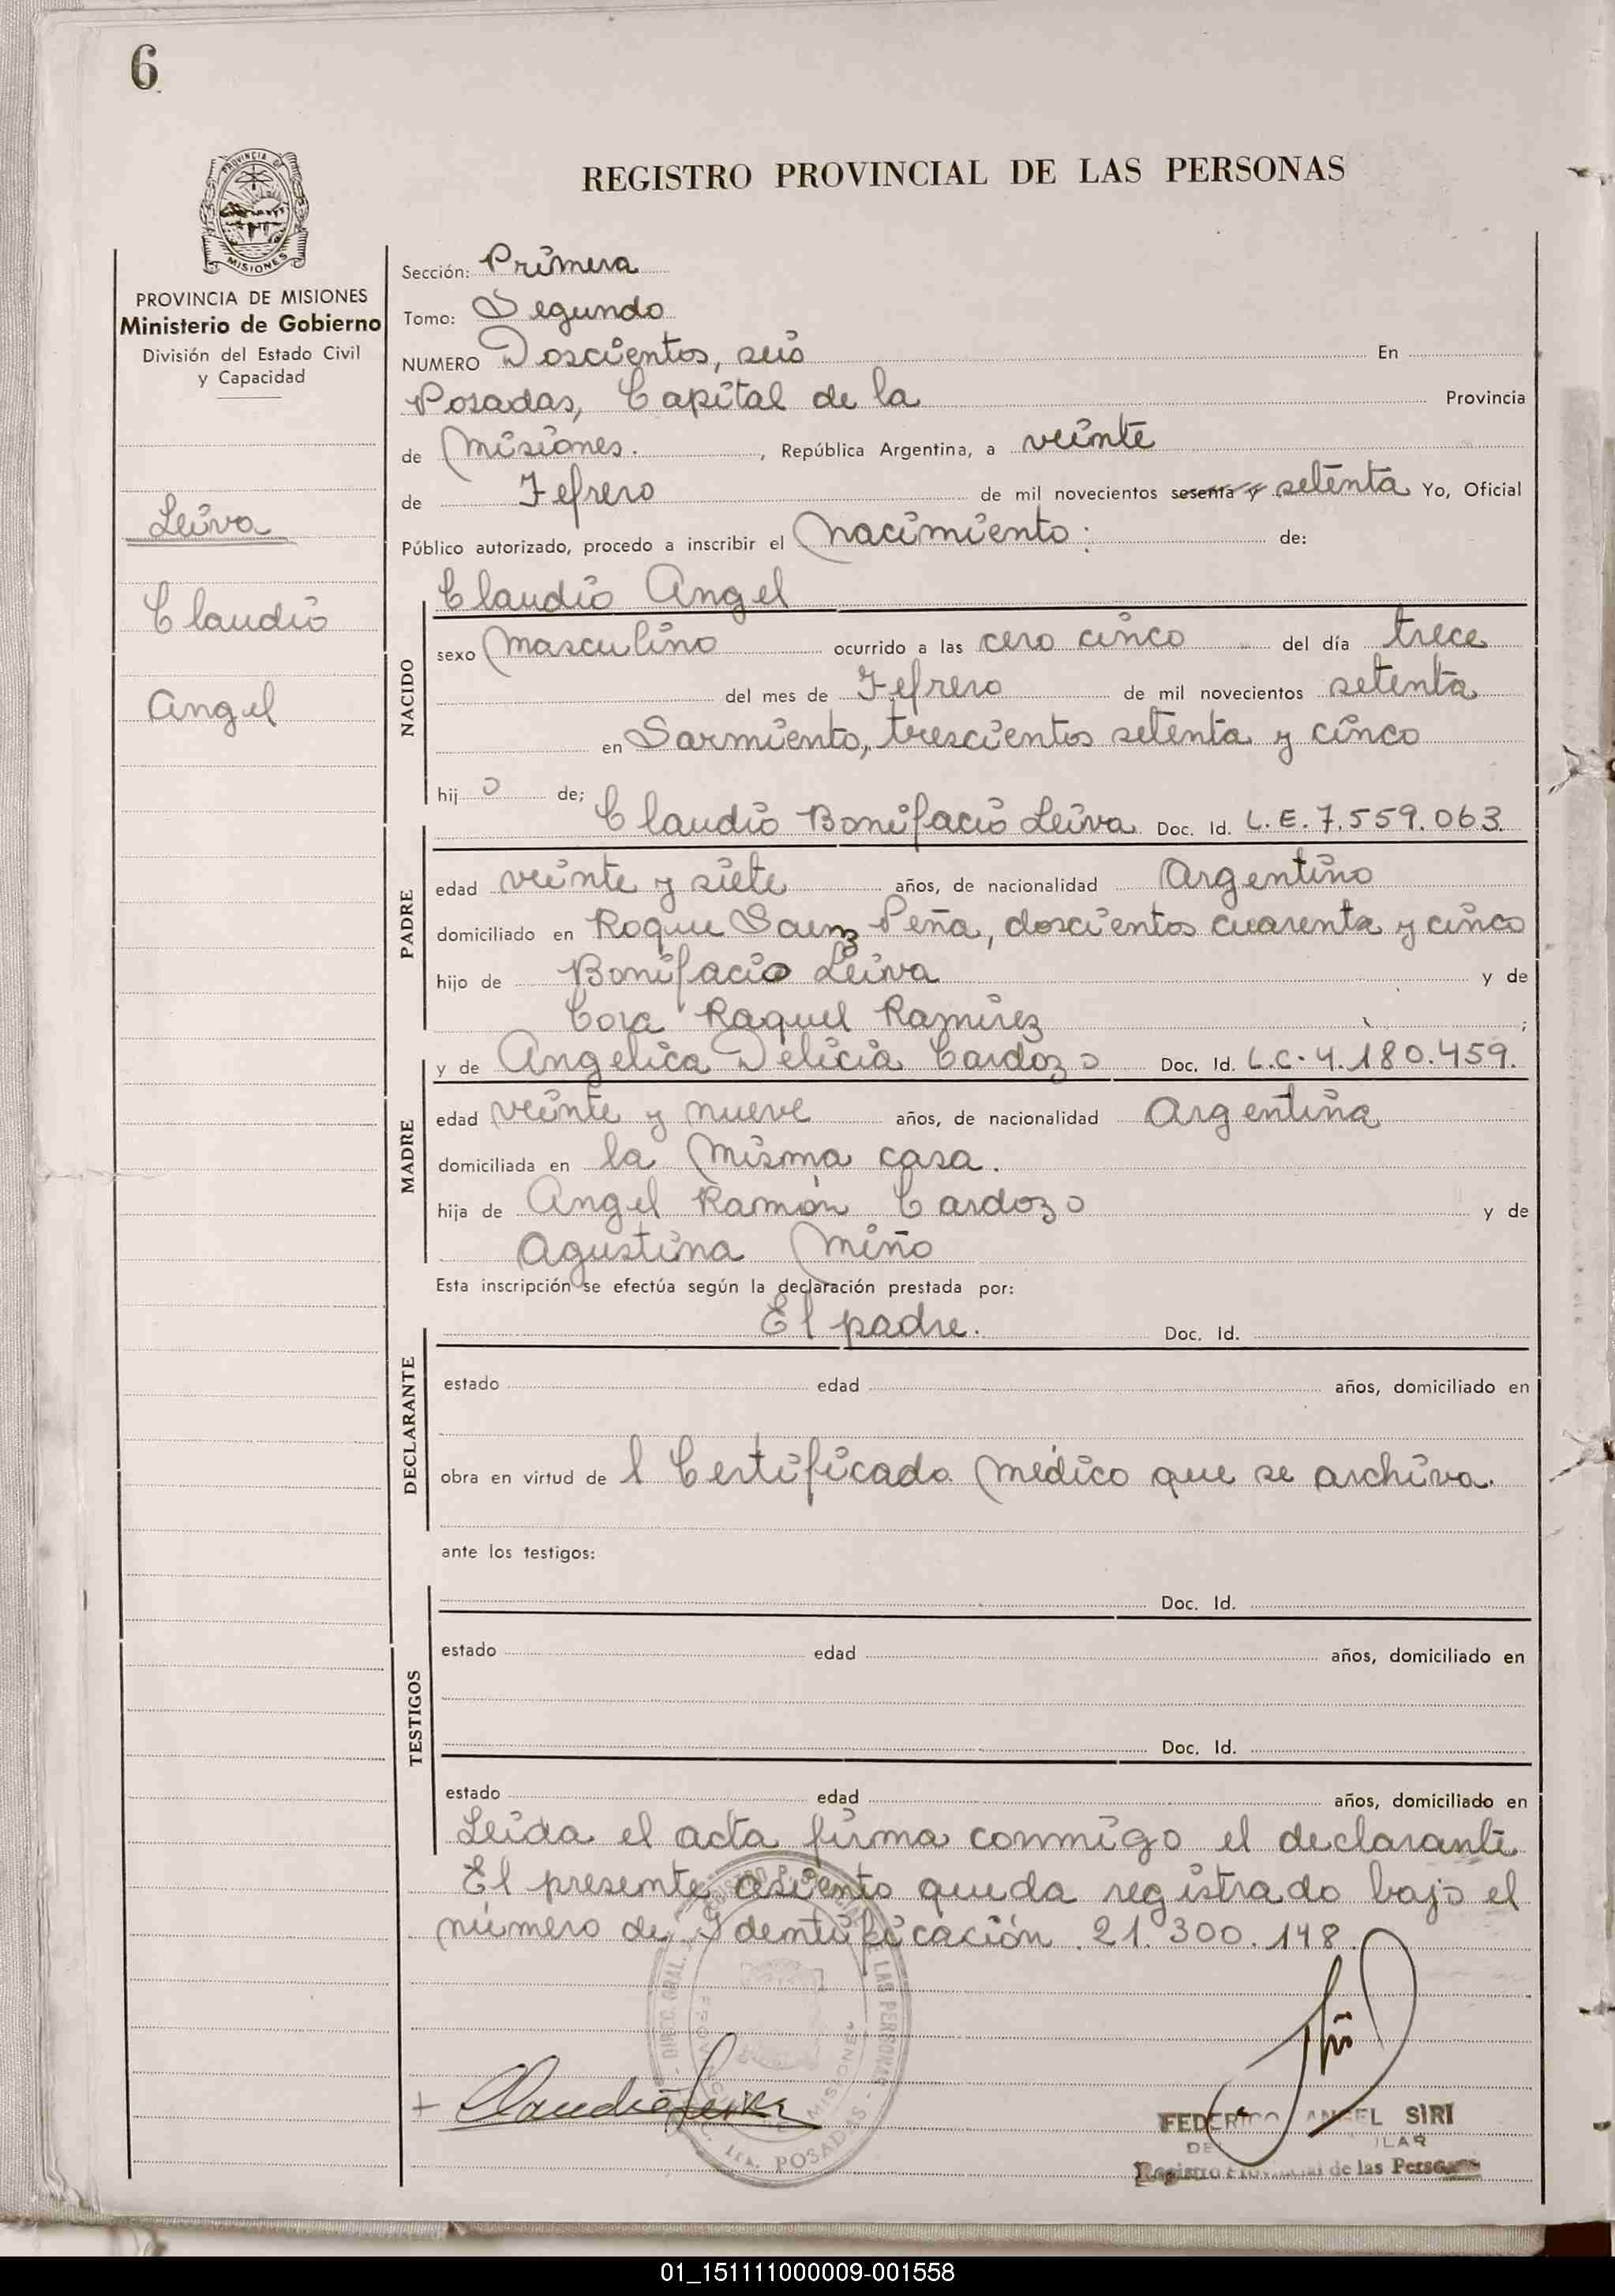 6
REGISTRO PROVINCIAL DE LAS PERSONAS
PROVINCIA DE MISIONES
Ministerio de Gobierno
División del Estado Civil
y Capacidad
Leiva
Claudio
Angel
Sección: Primera
Tomo: Segundo
NUMERO Doscientos, seis En
Posadas, Capital de la Provincia
de Misiones. , República Argentina, a veinte
de Fefrero de mil novecientos sesenta y setenta Yo, Oficial
Público autorizado, procedo a inscribir el Nacimiento: de:
Claudio Angel
NACIDO
sexo Masculino ocurrido a las cero cinco del día trece
del mes de Fefrero de mil novecientos setenta
en Sarmiento, trescientos setenta y cinco
hij o de;
Claudio Bonifacio Leiva Doc. Id. L.E. 7.559.063.
PADRE
edad veinte y siete años, de nacionalidad Argentino
domiciliado en Roque Saenz Peña, doscientos cuarenta y cinco
hijo de Bonifacio Leiva y de
Cora Raquel Ramirez ;
y de Angelica Delicia Cardozo Doc. Id. L.C. 4.180.459.
MADRE
edad veinte y nueve años, de nacionalidad Argentina
domiciliada en la Misma casa.
hija de Angel Ramón Cardozo y de
Agustina Miño
Esta inscripción se efectúa según la declaración prestada por:
El padre. Doc. Id.
DECLARANTE
estado edad años, domiciliado en
obra en virtud de l Certificado Médico que se archiva.
ante los testigos:
Doc. Id.
TESTIGOS
estado edad años, domiciliado en
Doc. Id.
estado edad años, domiciliado en
Leida el acta firma conmigo el declarante
El presente asiento queda registrado bajo el
número de Identificación. 21.300.148.
Claudio Leiva
POSADAS
MISIONES
FEDERICO ANGEL SIRI
Registro Provincial de las Personas
01_151111000009-001558